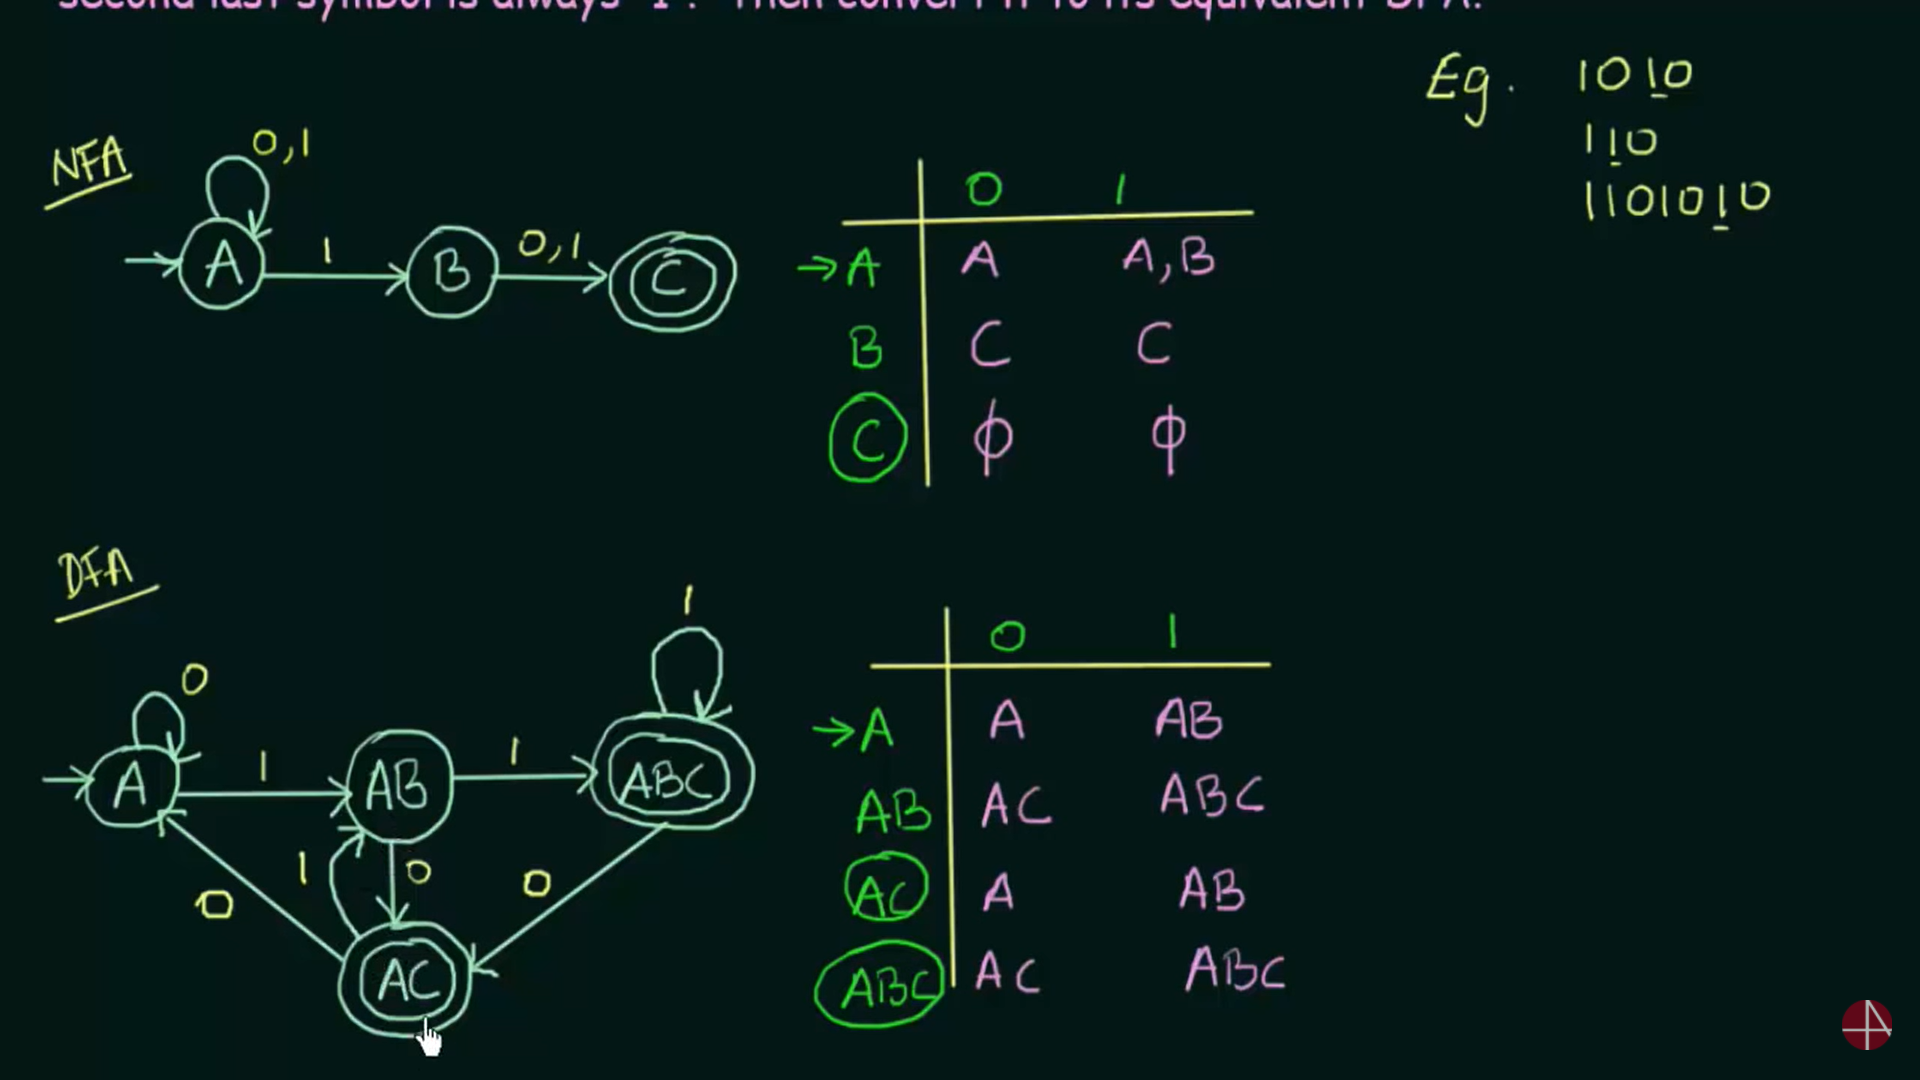 second last symbol is always '1'. Then convert it to its equivalent DFA.
Eg. 1010
110
1101010
NFA
0,1
A 1 B 0,1 C
0 1
→A A A,B
B C C
C ϕ ϕ
DFA
0 1
A 1 AB 1 ABC
0 1 0 0
AC
0 1
→A A AB
AB AC ABC
AC A AB
ABC AC ABC